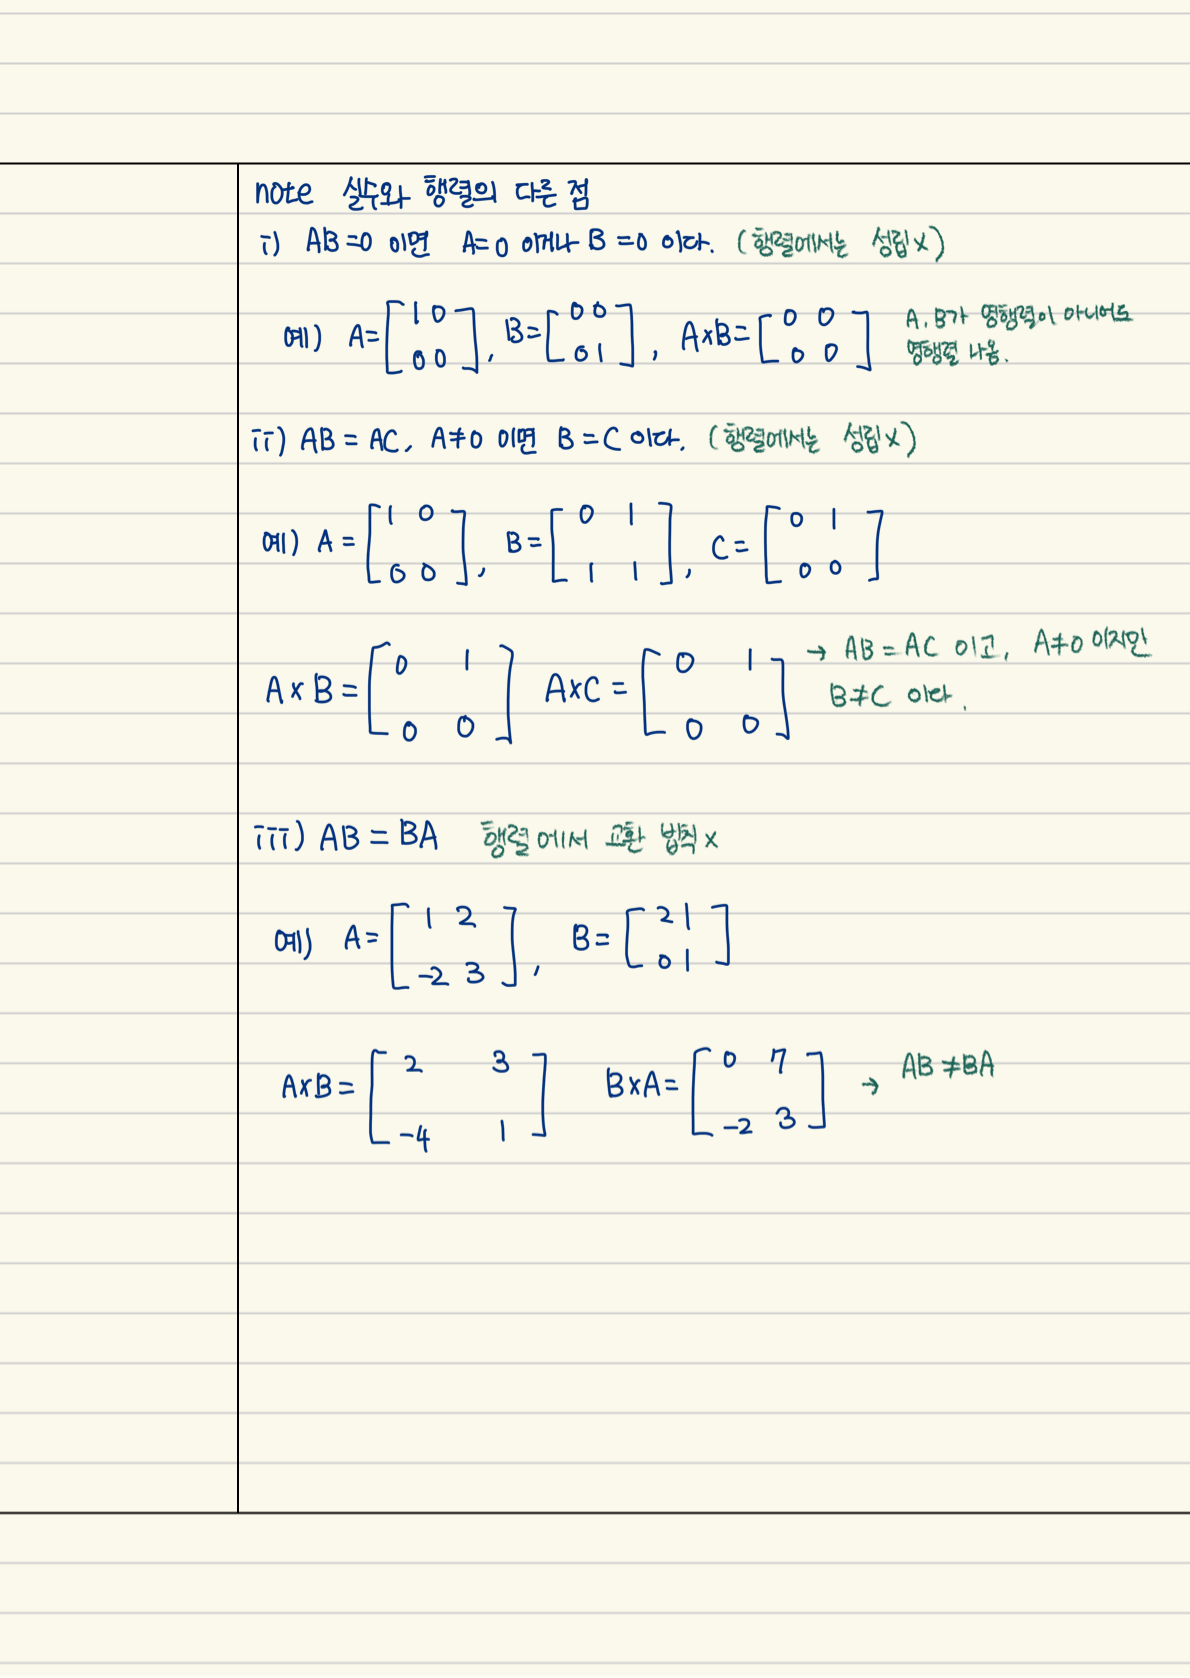 note 실수와 행렬의 다른 점
i) AB=0 이면 A=0 이거나 B=0 이다. (행렬에서는 성립X)
예) A=[1 0; 0 0], B=[0 0; 0 1], A×B=[0 0; 0 0] A, B가 영행렬이 아니어도
영행렬 나옴.
ii) AB=AC, A≠0 이면 B=C 이다. (행렬에서는 성립X)
예) A=[1 0; 0 0], B=[0 1; 1 1], C=[0 1; 0 0]
A×B=[0 1; 0 0] A×C=[0 1; 0 0] → AB=AC 이고, A≠0 이지만
B≠C 이다.
iii) AB=BA 행렬에서 교환 법칙 X
예) A=[1 2; -2 3], B=[2 1; 0 1]
A×B=[2 3; -4 1] B×A=[0 7; -2 3] → AB≠BA